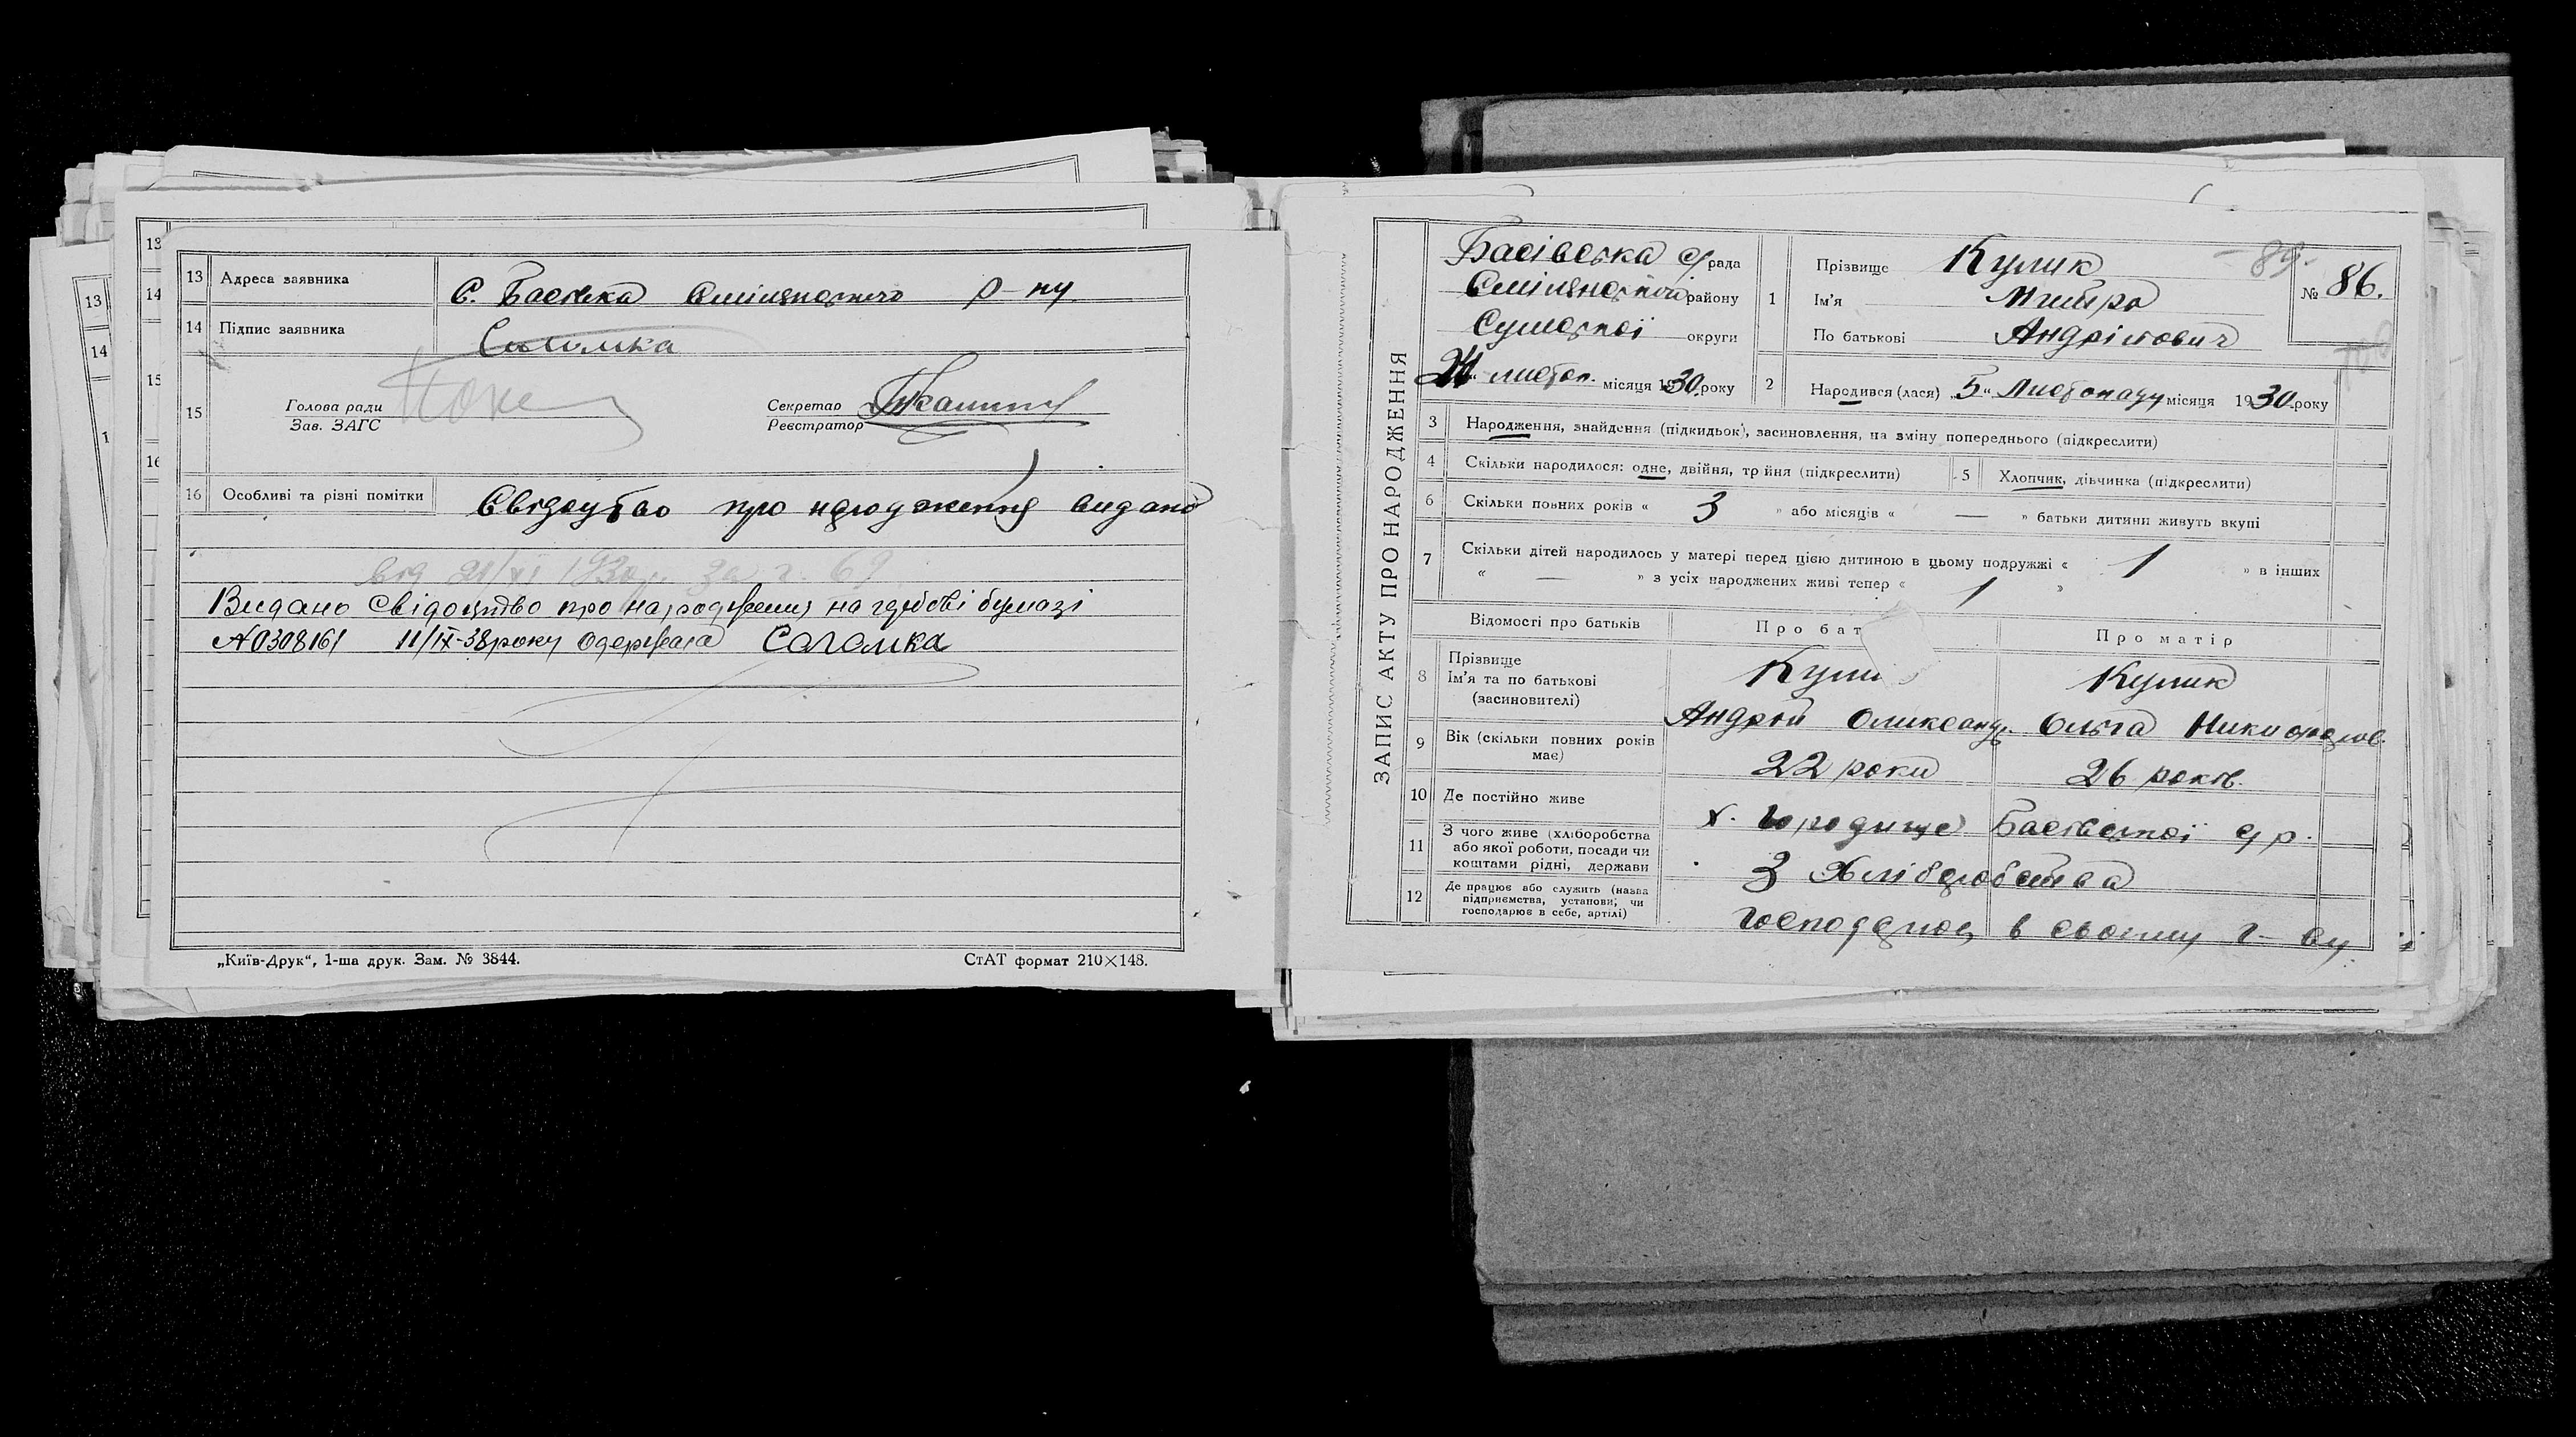 13 Адреса заявника С. Басівка Сміляного р-ну
14 Підпис заявника Соломка
15 Голова ради
Зав. ЗАГС
Секретар
Реєстратор
16 Особливі та різні помітки Свідоцтво про народження видано
від 21/XI 1930 р. за № 69
Видано свідоцтво про народження на гербові бумазі
№ 0308161 11/IX-38 року одержала Соломка
„Київ-Друк“, 1-ша друк. Зам. № 3844.
СтАТ формат 210×148.
ЗАПИС АКТУ ПРО НАРОДЖЕННЯ
Басівська с/рада
району
Сумської округи
21 „листоп. місяця 1930 року
1 Прізвище Кулик
Ім’я Митро
По батькові Андрійович
-89-
№ 86.
2 Народився (лася) „5“ Листопаду місяця 1930 року
3 Народження, знайдення (підкидьок), засиновлення, на зміну попереднього (підкреслити)
4 Скільки народилося: одне, двійня, трійня (підкреслити)
5 Хлопчик, дівчинка (підкреслити)
6 Скільки повних років « 3 » або місяців « — » батьки дитини живуть вкупі
7 Скільки дітей народилось у матері перед цією дитиною в цьому подружжі « 1 » в інших
« — » з усіх народжених живі тепер « 1 »
Відомості про батьків
Про бат
Про матір
8 Прізвище
Ім’я та по батькові
(засиновителі)
Кули
Андрій Олександ.
Кулик
Ольга Никифоров.
9 Вік (скільки повних років має)
22 роки
26 років.
10 Де постійно живе
х. Городище Басівської с/р.
11 З чого живе (хліборобства
або якої роботи, посади чи
коштами рідні, держави
З хліборобства
12 Де працює або служить (назва
підприємства, установи, чи
господарює в себе, артілі)
Господарює в своєму г-ву